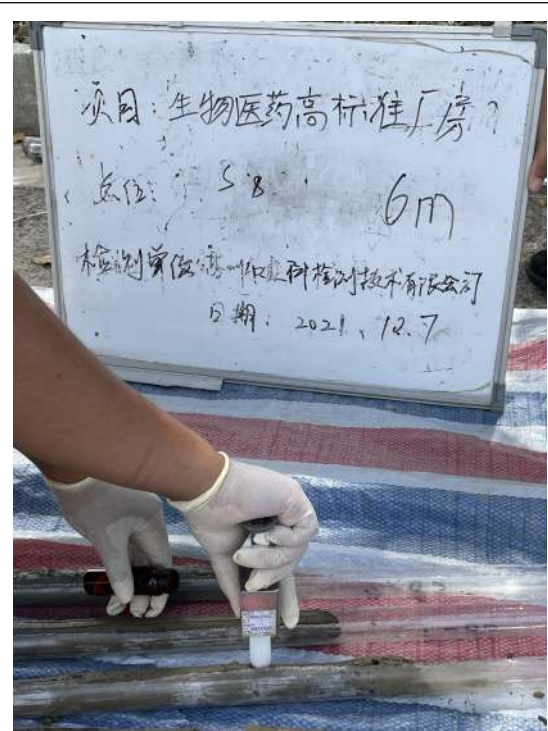 项目:生物医药高标准厂房
点位: S8 6m
检测单位: 科检测技术有限公司
日期: 2021.12.7